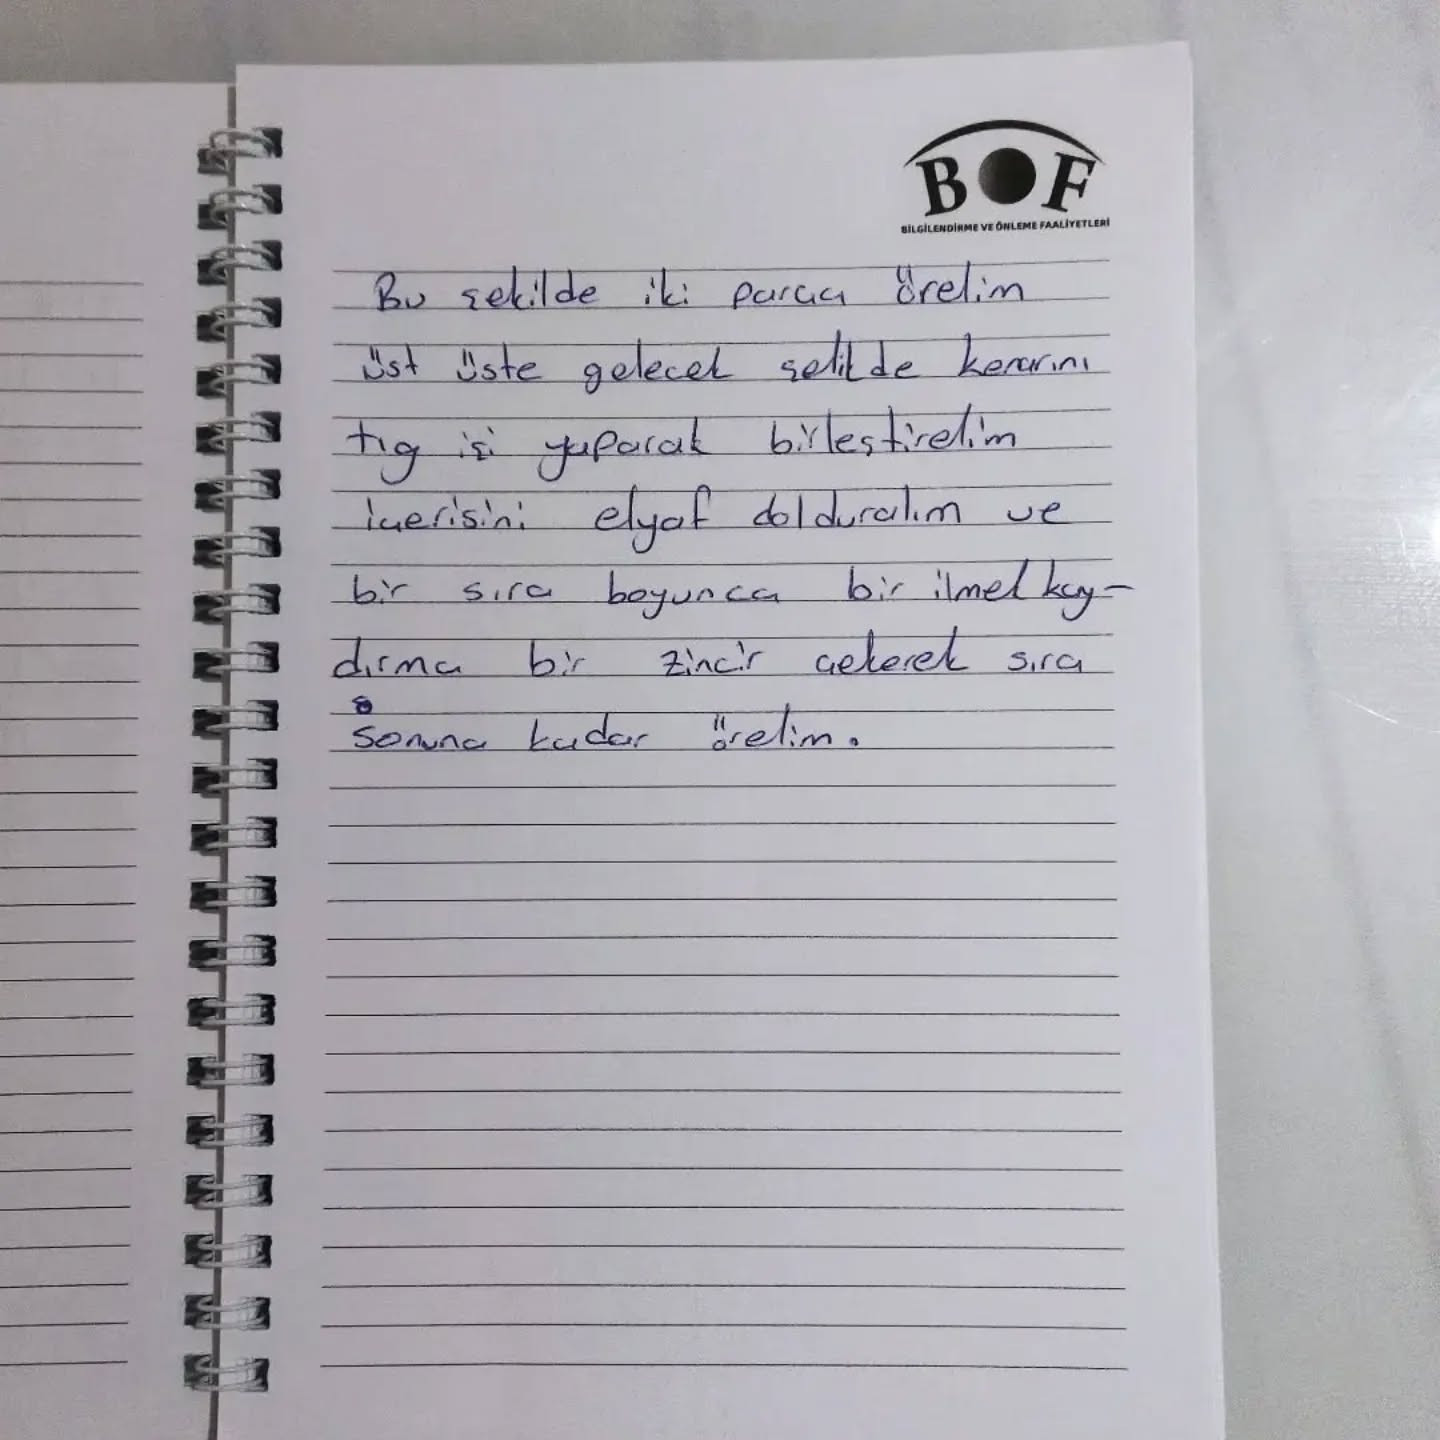 BOF
BİLGİLENDİRME VE ÖNLEME FAALİYETLERİ
Bu şekilde iki parça örelim
üst üste gelecek şekilde kenarını
tığ işi yaparak birleştirelim
içerisini elyaf dolduralım ve
bir sıra boyunca bir ilmek kay-
dırma bir zincir çekerek sıra
sonuna kadar örelim.